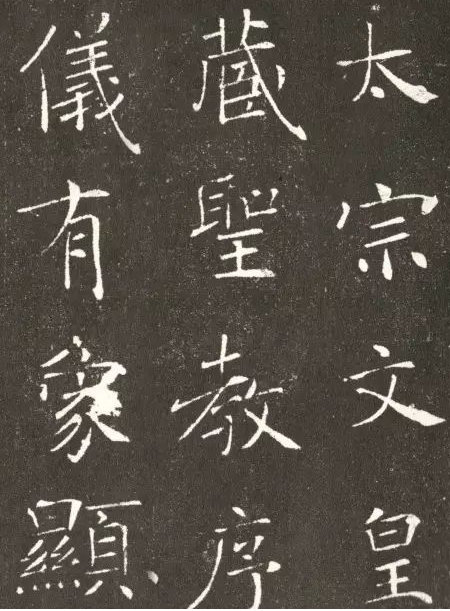 太宗文皇
藏聖教序
儀有象顯